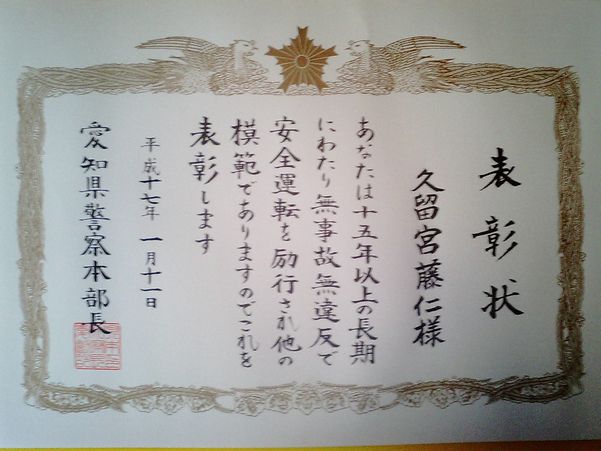 表彰状
久留宮藤仁様
あなたは十五年以上の長期
にわたり無事故無違反で
安全運転を励行され他の
模範でありますのでこれを
表彰します
平成十七年 一月十一日
愛知県警察本部長